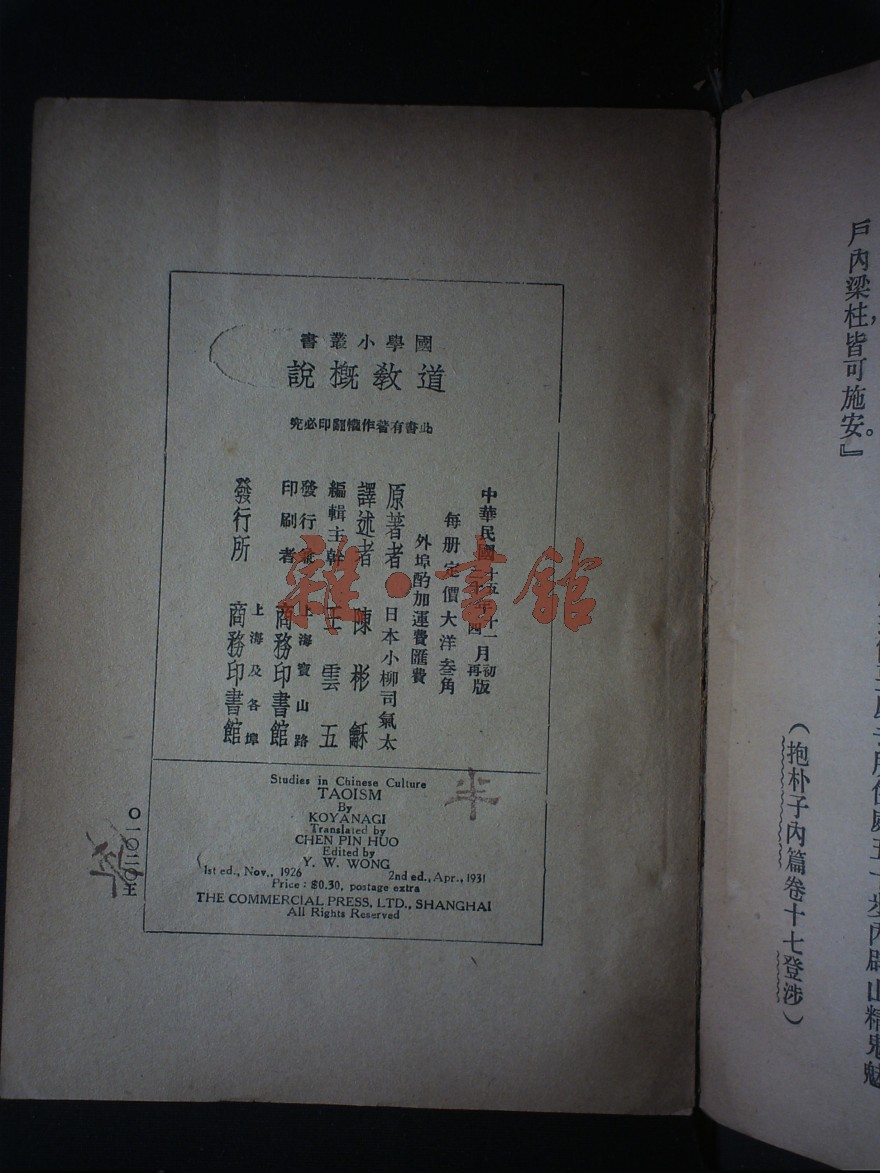 國學小叢書
道教概說
此書有著作權翻印必究
中華民國十五年十一月初版
二十年四月再版
每册定價大洋叁角
外埠酌加運費匯費
原著者 日本小柳司氣太
譯述者 陳彬龢
編輯主幹 王雲五
發行兼印刷者 上海寶山路 商務印書館
發行所 上海及各埠 商務印書館
Studies in Chinese Culture
TAOISM
By
KOYANAGI
Translated by
CHEN PIN HUO
Edited by
Y. W. WONG
1st ed., Nov., 1926 2nd ed., Apr., 1931
Price : $0.30, postage extra
THE COMMERCIAL PRESS, LTD., SHANGHAI
All Rights Reserved
〇一〇二〇王
雜·書館
戶內梁柱，皆可施安。』
（抱朴子內篇卷十七登涉）